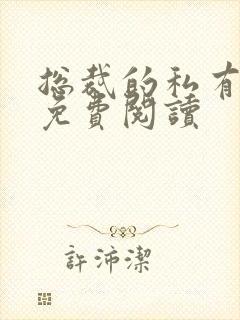 总裁的私有
免費閱讀
許沛潔